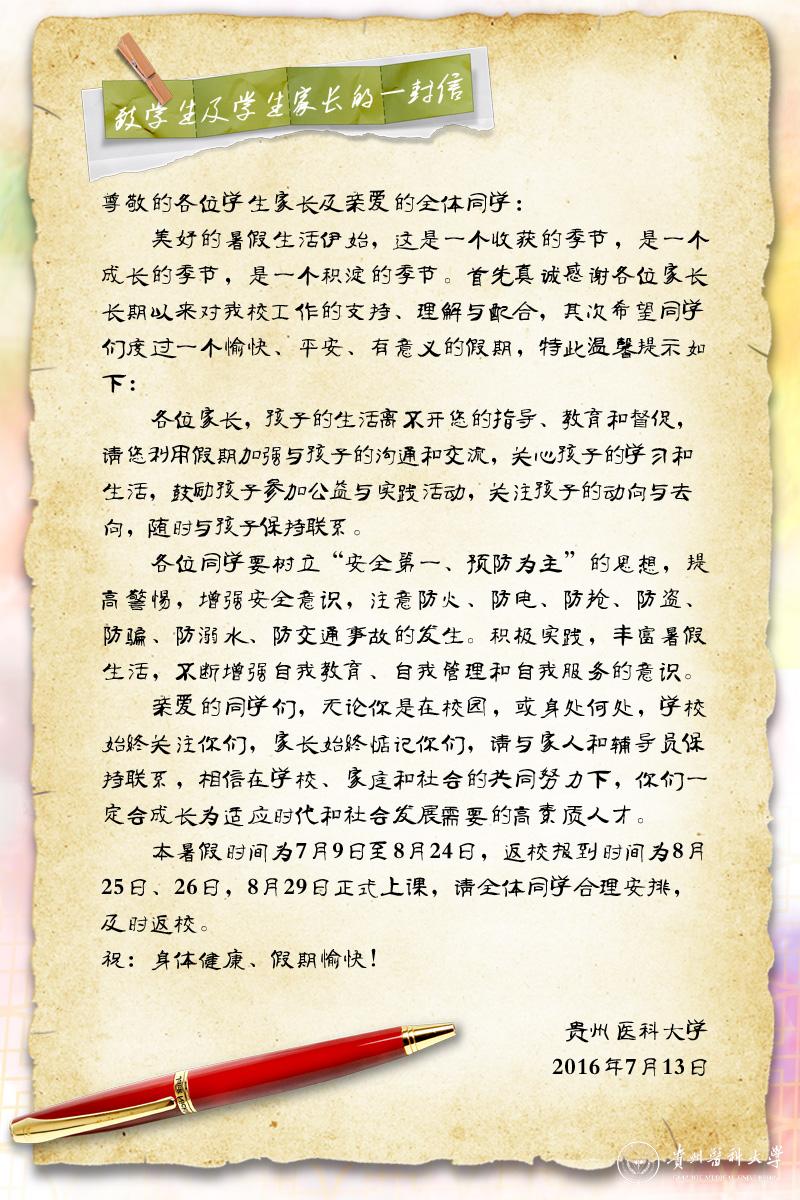 致学生及学生家长的一封信
尊敬的各位学生家长及亲爱的全体同学：
美好的暑假生活伊始，这是一个收获的季节，是一个
成长的季节，是一个积淀的季节。首先真诚感谢各位家长
长期以来对我校工作的支持、理解与配合，其次希望同学
们度过一个愉快、平安、有意义的假期，特此温馨提示如
下：
各位家长，孩子的生活离不开您的指导、教育和督促，
请您利用假期加强与孩子的沟通和交流，关心孩子的学习和
生活，鼓励孩子参加公益与实践活动，关注孩子的动向与去
向，随时与孩子保持联系。
各位同学要树立“安全第一、预防为主”的思想，提
高警惕，增强安全意识，注意防火、防电、防抢、防盗、
防骗、防溺水、防交通事故的发生。积极实践，丰富暑假
生活，不断增强自我教育、自我管理和自我服务的意识。
亲爱的同学们，无论你是在校园，或身处何处，学校
始终关注你们，家长始终惦记你们，请与家人和辅导员保
持联系，相信在学校、家庭和社会的共同努力下，你们一
定会成长为适应时代和社会发展需要的高素质人才。
本暑假时间为7月9日至8月24日，返校报到时间为8月
25日、26日，8月29日正式上课，请全体同学合理安排，
及时返校。
祝：身体健康、假期愉快！
贵州医科大学
2016年7月13日
貴州醫科大學
GUIZHOU MEDICAL UNIVERSITY